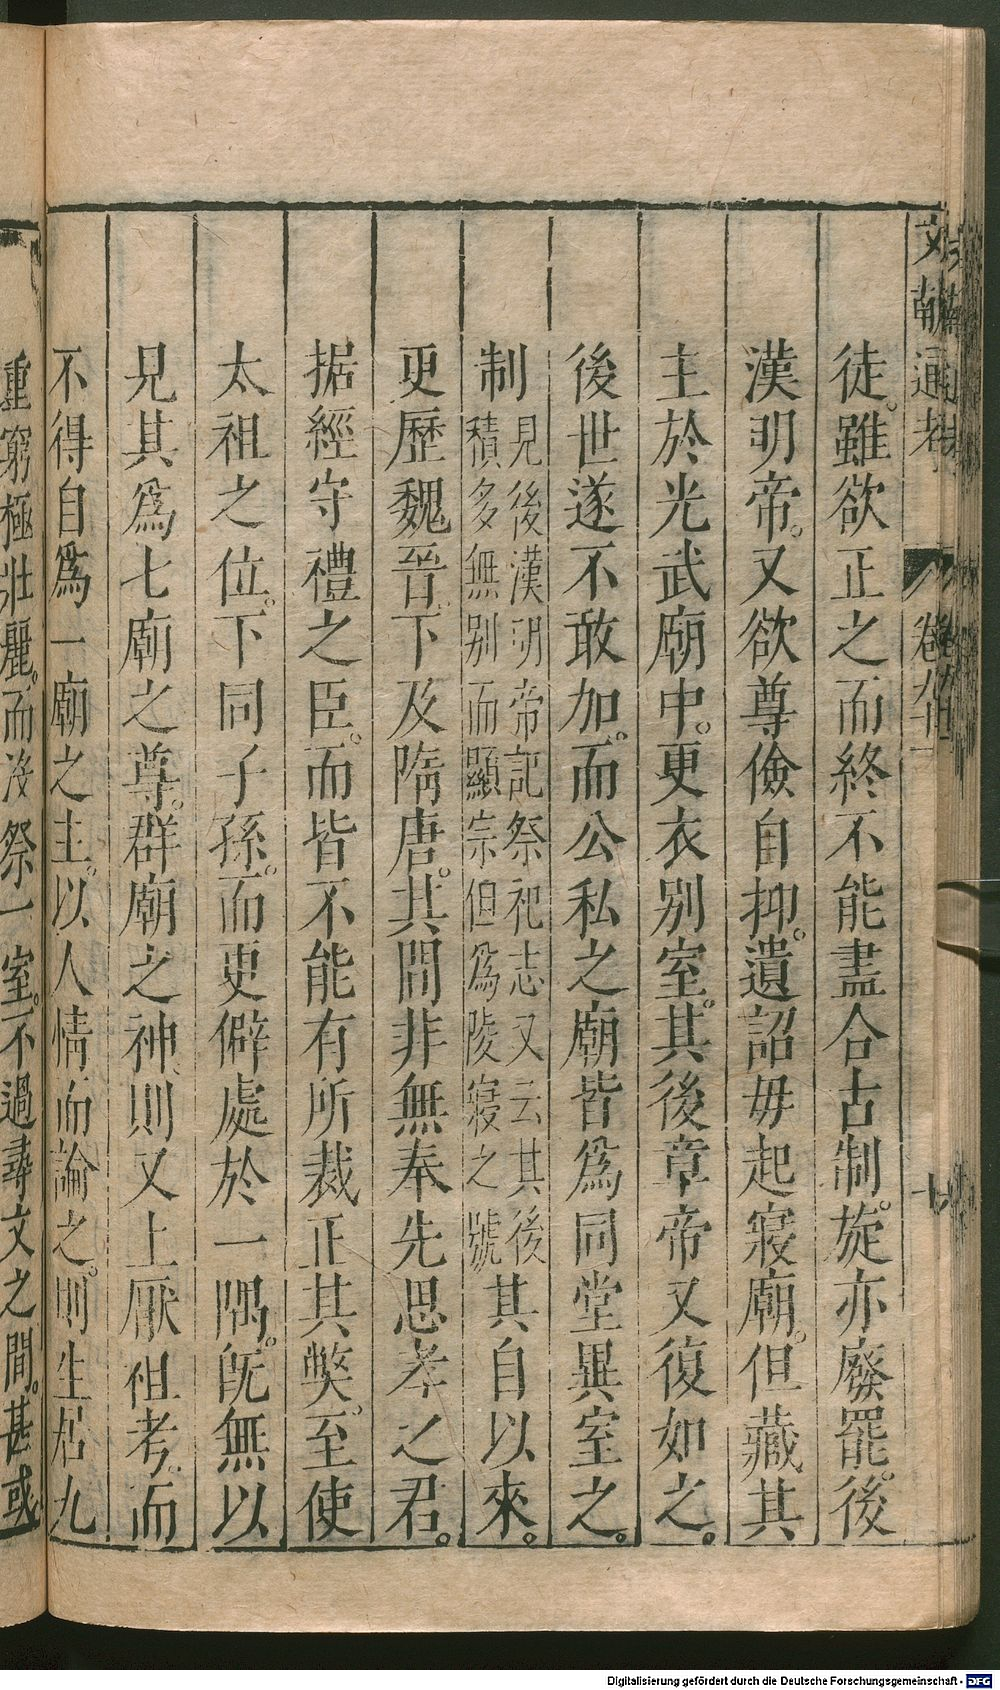 文獻通考 卷九十一
徒。雖欲正之而終不能盡合古制。旋亦廢罷。後
漢明帝。又欲尊儉自抑。遺詔毋起寢廟。但藏其
主於光武廟中。更衣別室。其後章帝又復如之。
後世遂不敢加。而公私之廟皆爲同堂異室之。
制見後漢明帝記祭祀志又云其後積多無别而顯宗但爲陵寢之號其自以來。
更歷魏晉。下及隋唐。其間非無奉先思孝之君。
据經守禮之臣。而皆不能有所裁正其獘。至使
太祖之位。下同子孫。而更僻處於一隅。旣無以
見其爲七廟之尊。群廟之神、則又上厭祖考。而
不得自爲一廟之主。以人情而論之。則生居九
重窮極壯麗。而没祭一室。不過尋丈之間。甚或
Digitalisierung gefördert durch die Deutsche Forschungsgemeinschaft - DFG